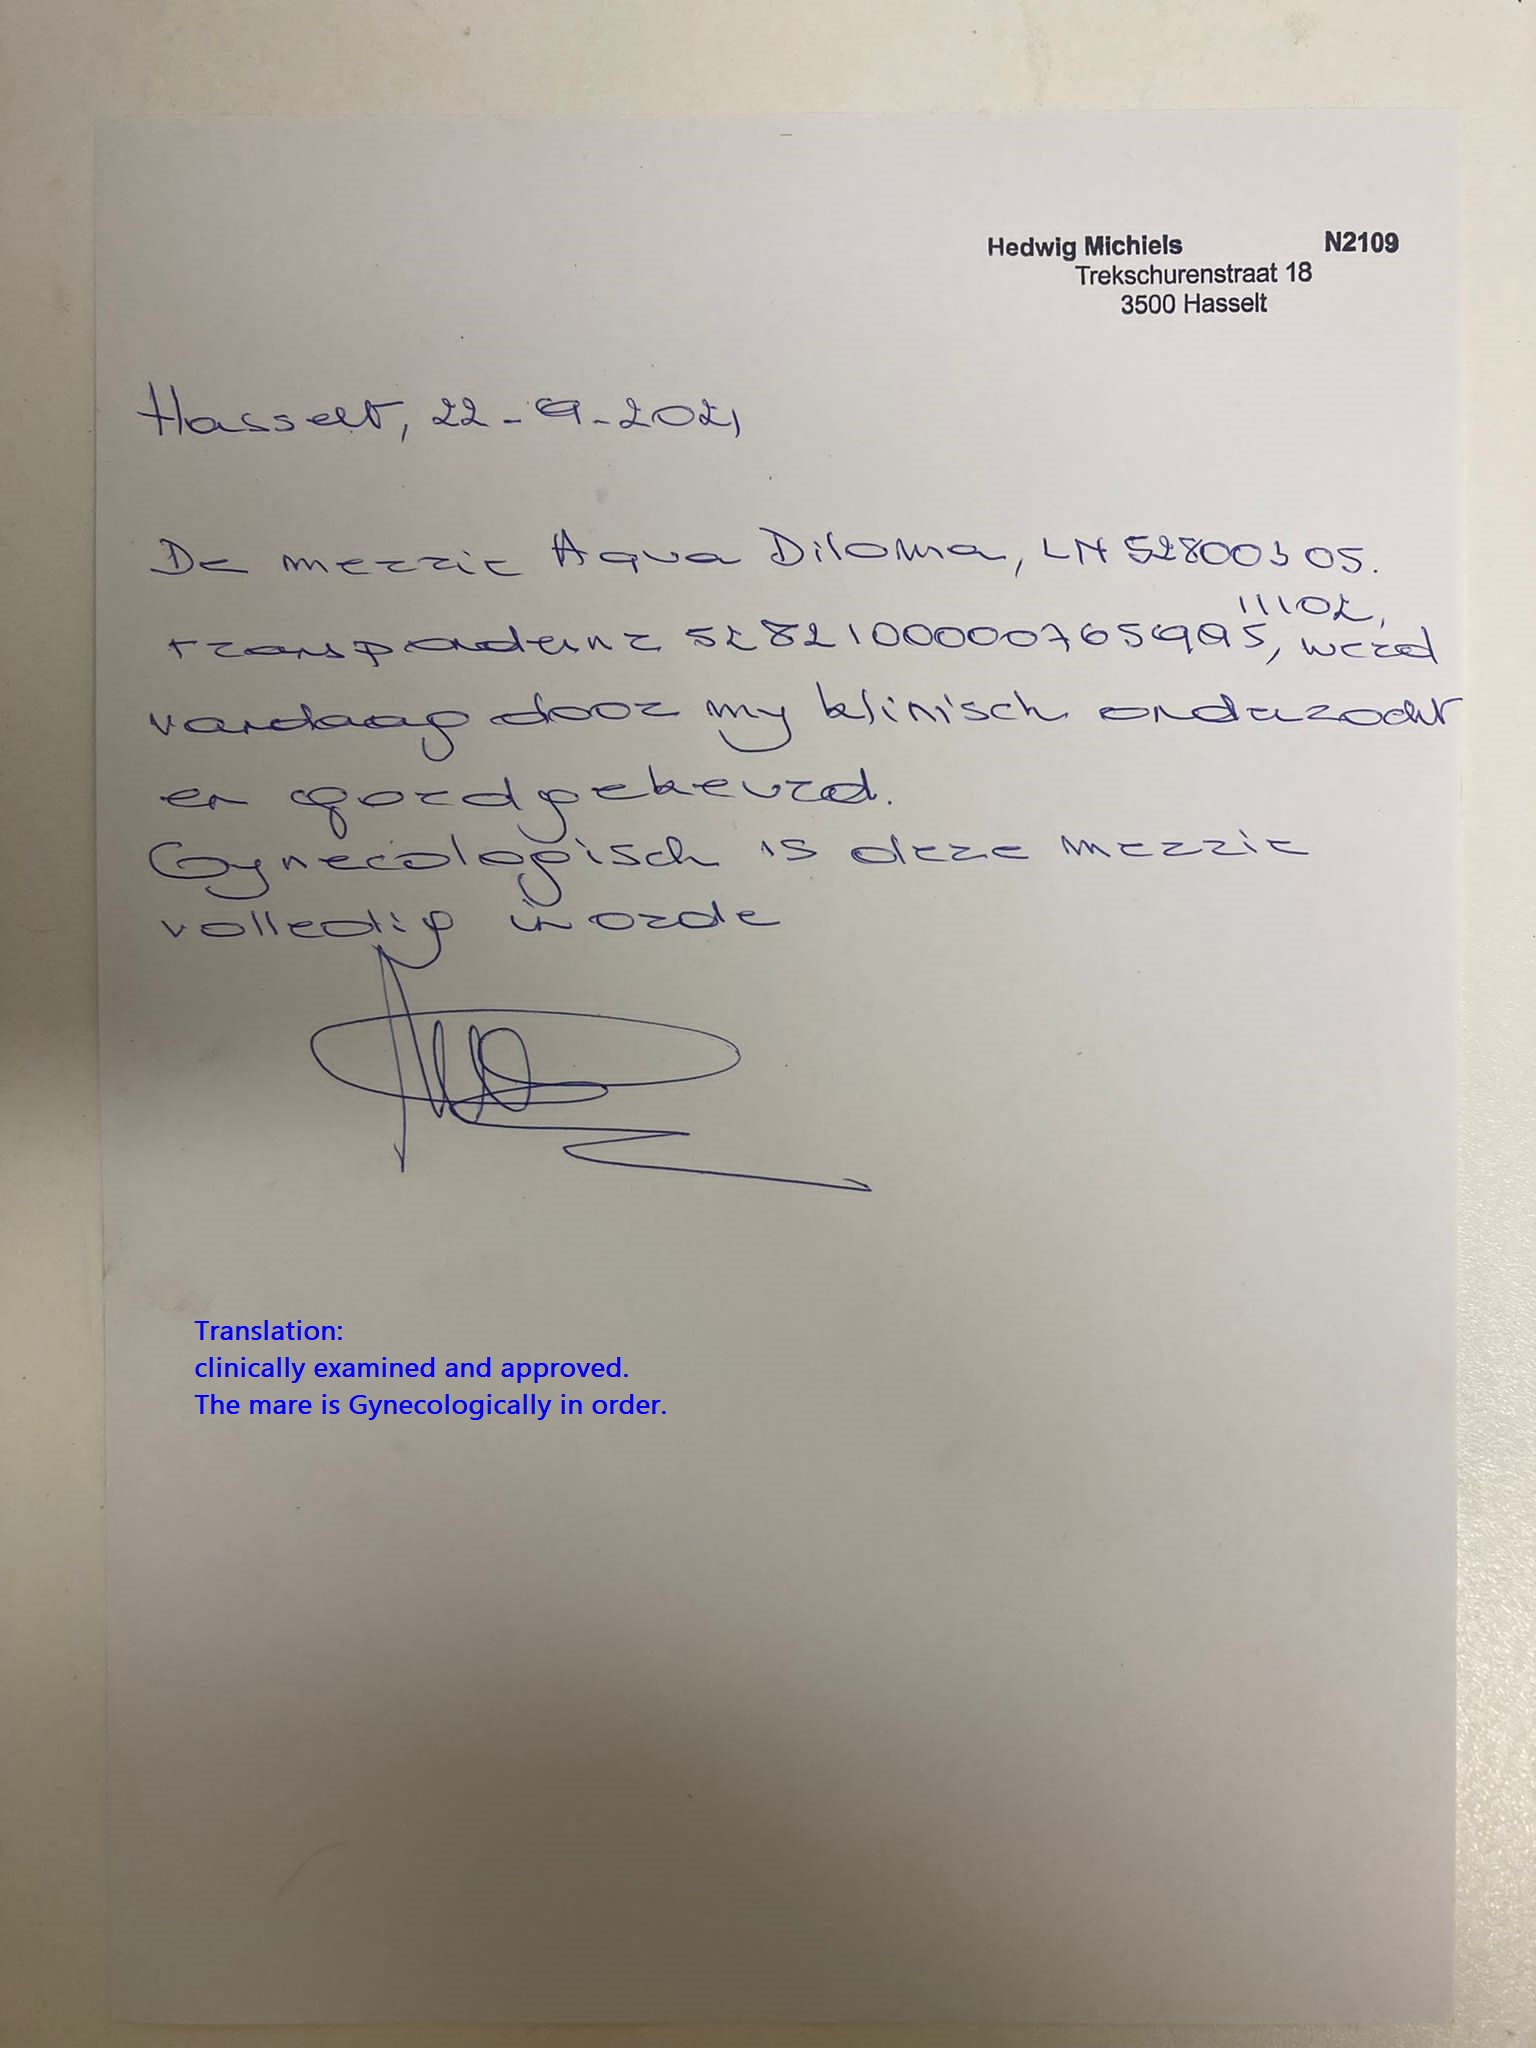 Hedwig Michiels N2109
Trekschurenstraat 18
3500 Hasselt
Hasselt, 22-9-2021
De merrie Aqua Diloma, LN 52800305.
11102,
transpondeur 528210000076599​5, werd
vandaag door my klinisch onderzocht
en goedgekeurd.
Gynecologisch is deze merrie
volledig in orde
Translation:
clinically examined and approved.
The mare is Gynecologically in order.